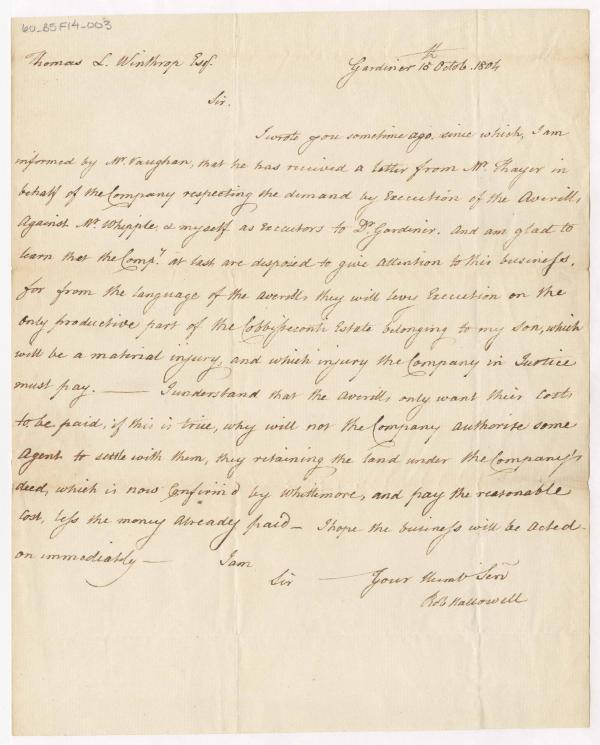 60_B5F14_003
Thomas L. Winthrop Esqr.
Gardiner 15th Octob. 1804
Sir.
I wrote you sometime ago. since which, I am
informed by Mr. Vaughan, that he has recived a letter from Mr. Thayer in
behalf of the Company respecting the demand by Execution of the Averills
against Mr. Whipple, & myself as Executors to Dr. Gardiner. and am glad to
learn that the Compy. at last are disposed to give attention to this business.
for from the language of the averills they will levy Execution on the
only productive part of the Cobbisseconti Estate belonging to my son, which
will be a material injury, and which injury the Company in Justice
must pay. — I understand that the Averills only want their costs
to be paid, if this is true, why will not the Company authorise some
Agent to settle with them, they retaining the land under the Company's
deed, which is now Confirm'd by Whittemore, and pay the reasonable
Cost, less the money already paid — I hope the business will be acted
on immediately — I am
Sir — Your Humb Serv
Rob Hallowell